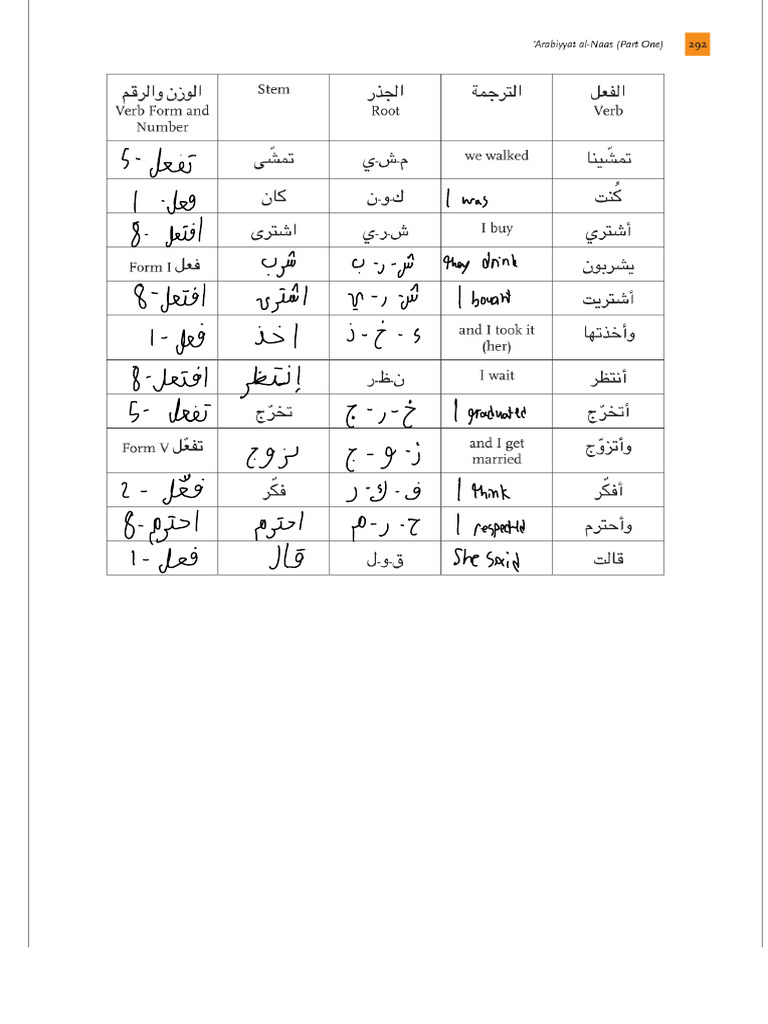 'Arabiyyat al-Naas (Part One) 292
الفعل الترجمة الجذر Stem الوزن والرقم
Verb Root Verb Form and
Number
تمشّينا we walked م-ش-ي تمشّى تفعل - 5
كُنت I was ك-و-ن كان فعل - 1
أشتري I buy ش-ر-ي اشترى افتعل - 8
يشربون they drink ش-ر-ب شرب فعل Form I
أشتريت I bought ش-ر-ي اشترى افتعل - 8
وأخذتها and I took it ء-خ-ذ اخذ فعل - 1
(her)
أنتظر I wait ن-ظ-ر إنتظر افتعل - 8
أتخرّج I graduated خ-ر-ج تخرّج تفعل - 5
وأتزوّج and I get ز-و-ج تزوج تفعّل Form V
married
أفكّر I think ف-ك-ر فكّر فعّل - 2
وأحترم I respected ح-ر-م احترم احترم - 8
قالت She said ق-و-ل قال فعل - 1